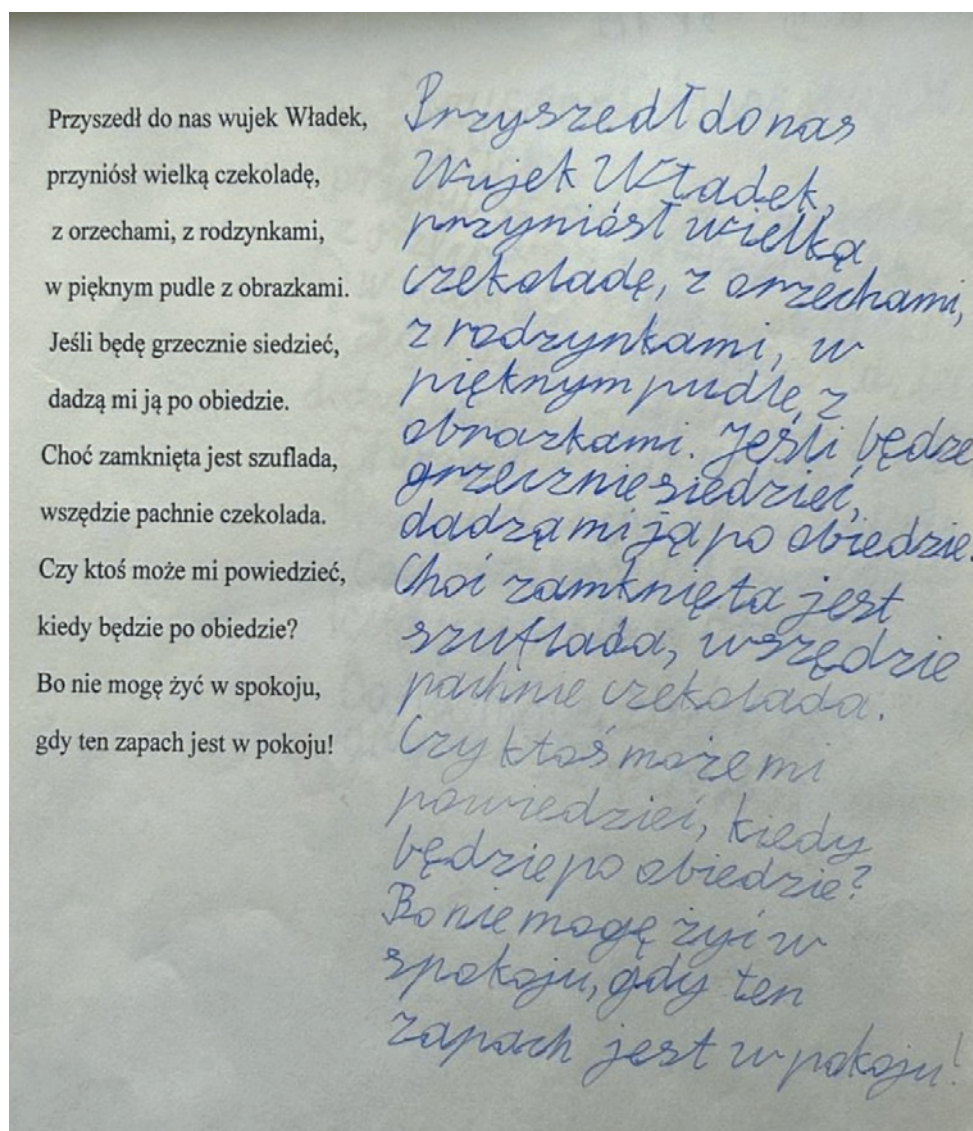 Przyszedł do nas wujek Władek,
przyniósł wielką czekoladę,
z orzechami, z rodzynkami,
w pięknym pudle z obrazkami.
Jeśli będę grzecznie siedzieć,
dadzą mi ją po obiedzie.
Choć zamknięta jest szuflada,
wszędzie pachnie czekolada.
Czy ktoś może mi powiedzieć,
kiedy będzie po obiedzie?
Bo nie mogę żyć w spokoju,
gdy ten zapach jest w pokoju!
Przyszedł do nas
Wujek Władek,
przyniósł wielką
czekoladę, z orzechami,
z rodzynkami, w
pięknym pudle, z
obrazkami. Jeśli będze
grzecznie siedzieć,
dadzą mi ją po obiedzie.
Choć zamknięta jest
szuflada, wszędzie
pachnie czekolada.
Czy ktoś może mi
powiedzieć, kiedy
będzie po obiedzie?
Bo nie mogę żyć w
spokoju, gdy ten
zapach jest w pokoju!